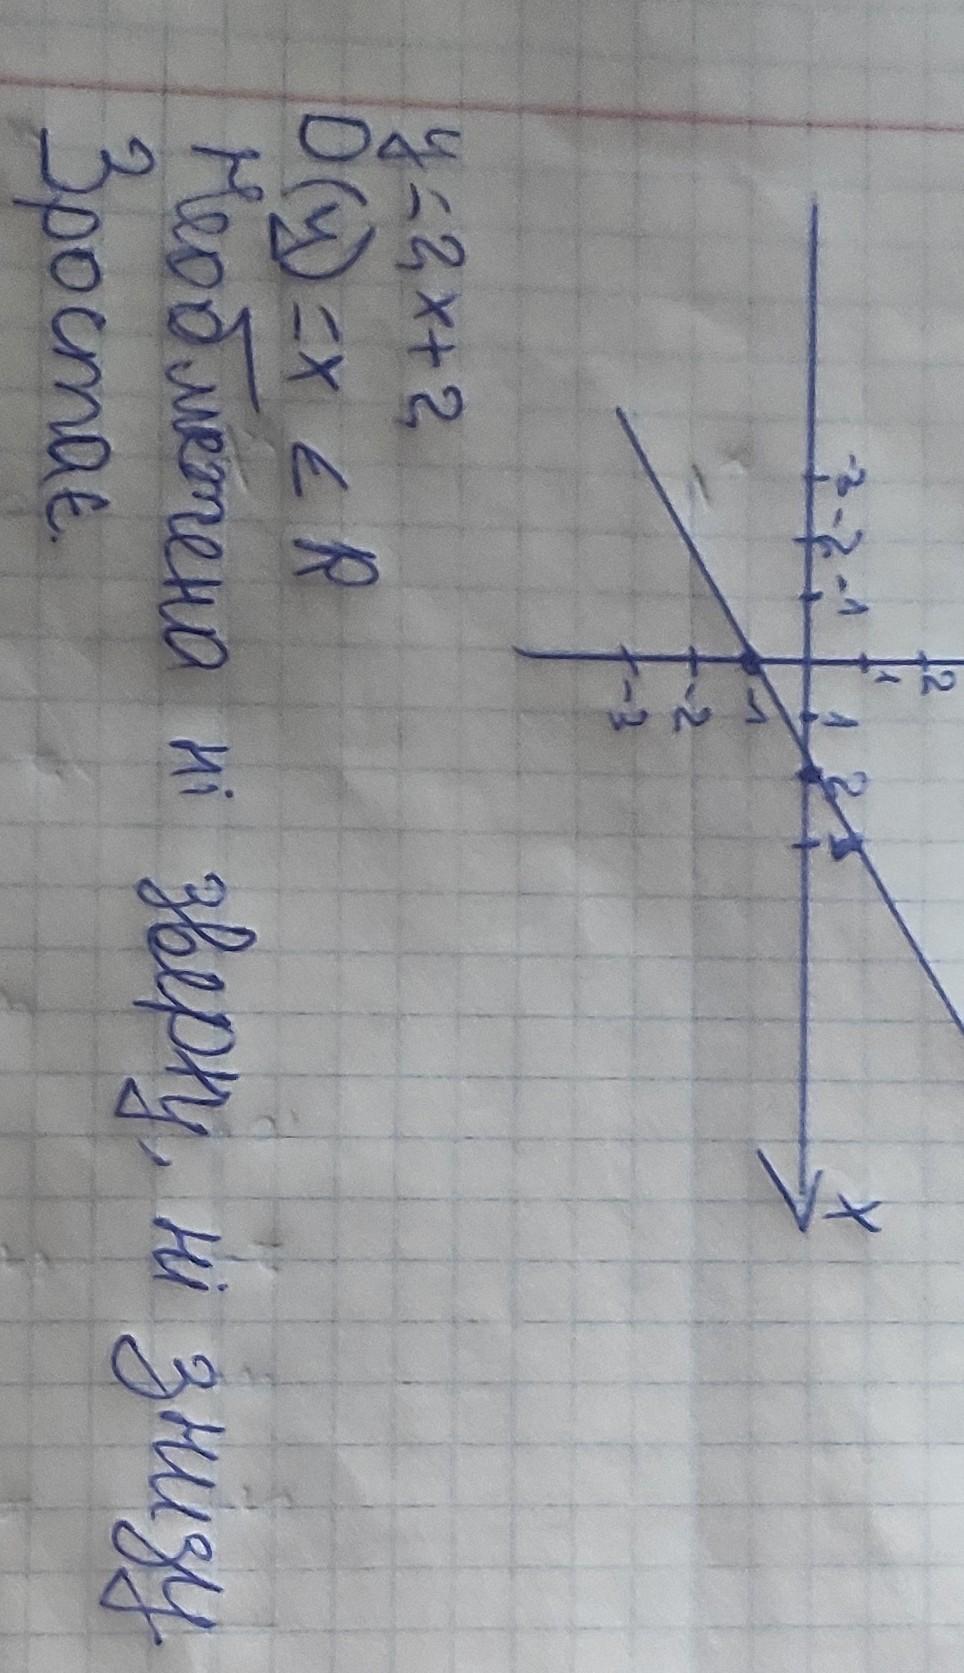 2
1
-3 -2 -1 1 2 3 X
-1
-2
-3
y=2x+2
D(y)=x ∠ R
Необмежена ні зверху, ні знизу
Зростає.